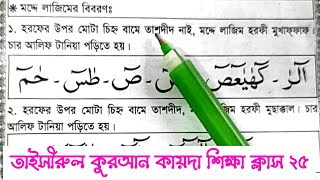 ※ মদ্দে লাজিমের বিবরণঃ
১. হরফের উপর মোটা চিহ্ন বামে তাশদীদ নাই, মদ্দে লাজিম হরফী মুখাফ্ফাফ
চার আলিফ টানিয়া পড়িতে হয়।
الٓرٰ - كٓهٰيٰعٓصٓ - صٓ - طٰسٓ - حٰمٓ
২. হরফের উপর মোটা চিহ্ন বামে তাশদীদ, মদ্দে লাজিম হরফী মুছাক্কাল।
চার আলিফ টানিয়া পড়িতে হয়।
তাইসীরুল কুরআন কায়দা শিক্ষা ক্লাস ২৫